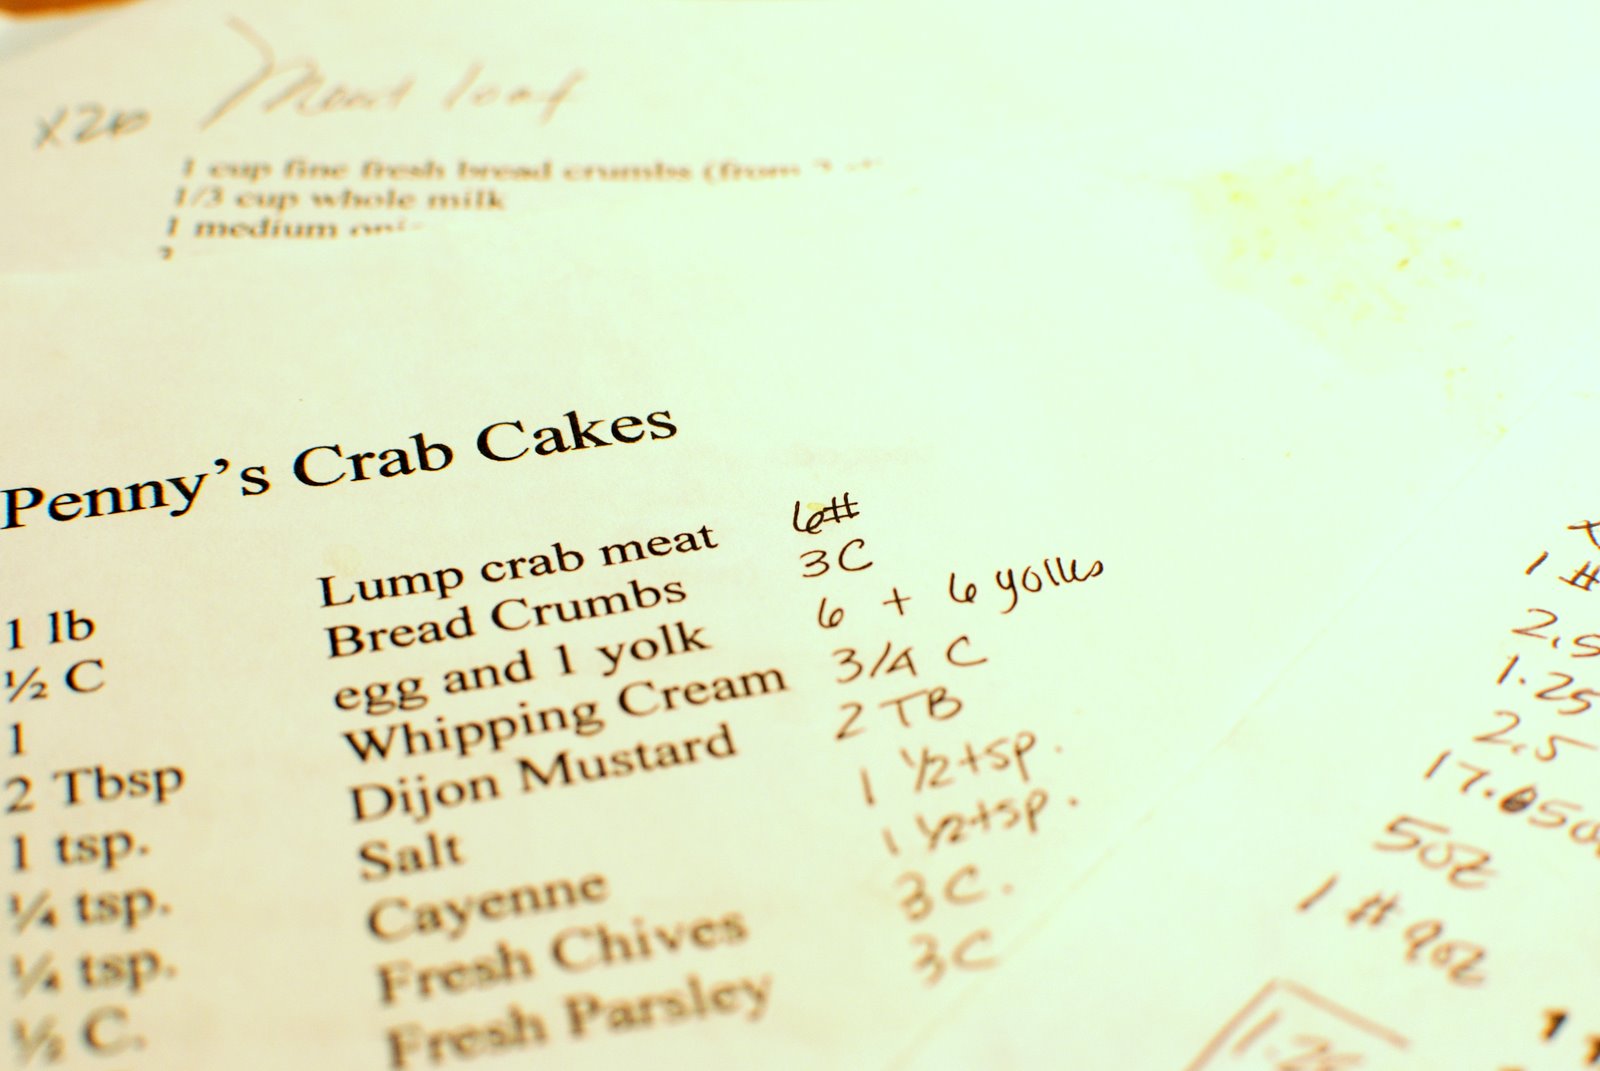 Meat loaf
x20
1 cup fine fresh bread crumbs (from
1/3 cup whole milk
1 medium
Penny's Crab Cakes
1 lb Lump crab meat 6#
½ C Bread Crumbs 3C
1 egg and 1 yolk 6 + 6 yolks
2 Tbsp Whipping Cream 3/4 C
1 tsp. Dijon Mustard 2 TB
¼ tsp. Salt 1 ½ tsp.
¼ tsp. Cayenne 1 ½ tsp.
½ C. Fresh Chives 3 C.
Fresh Parsley 3C
1 #
2.5
1.25
2.5
5oz
1 # 9oz